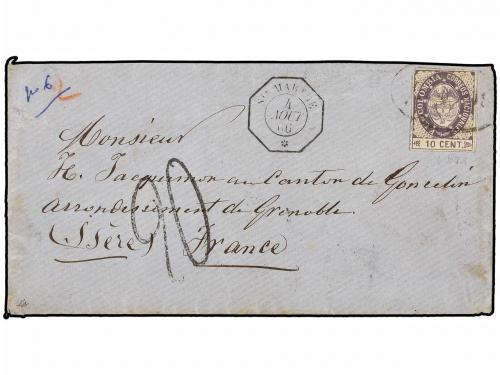 No 6
STE MARTHE
4
AOUT
66
E.U. DE COLOMBIA. CORREOS NACIONALES
10 CENT.
Monsieur
H. Jacquemor au Canton de Goncelin
arrondissement de Grenoble.
(Isère) France
90